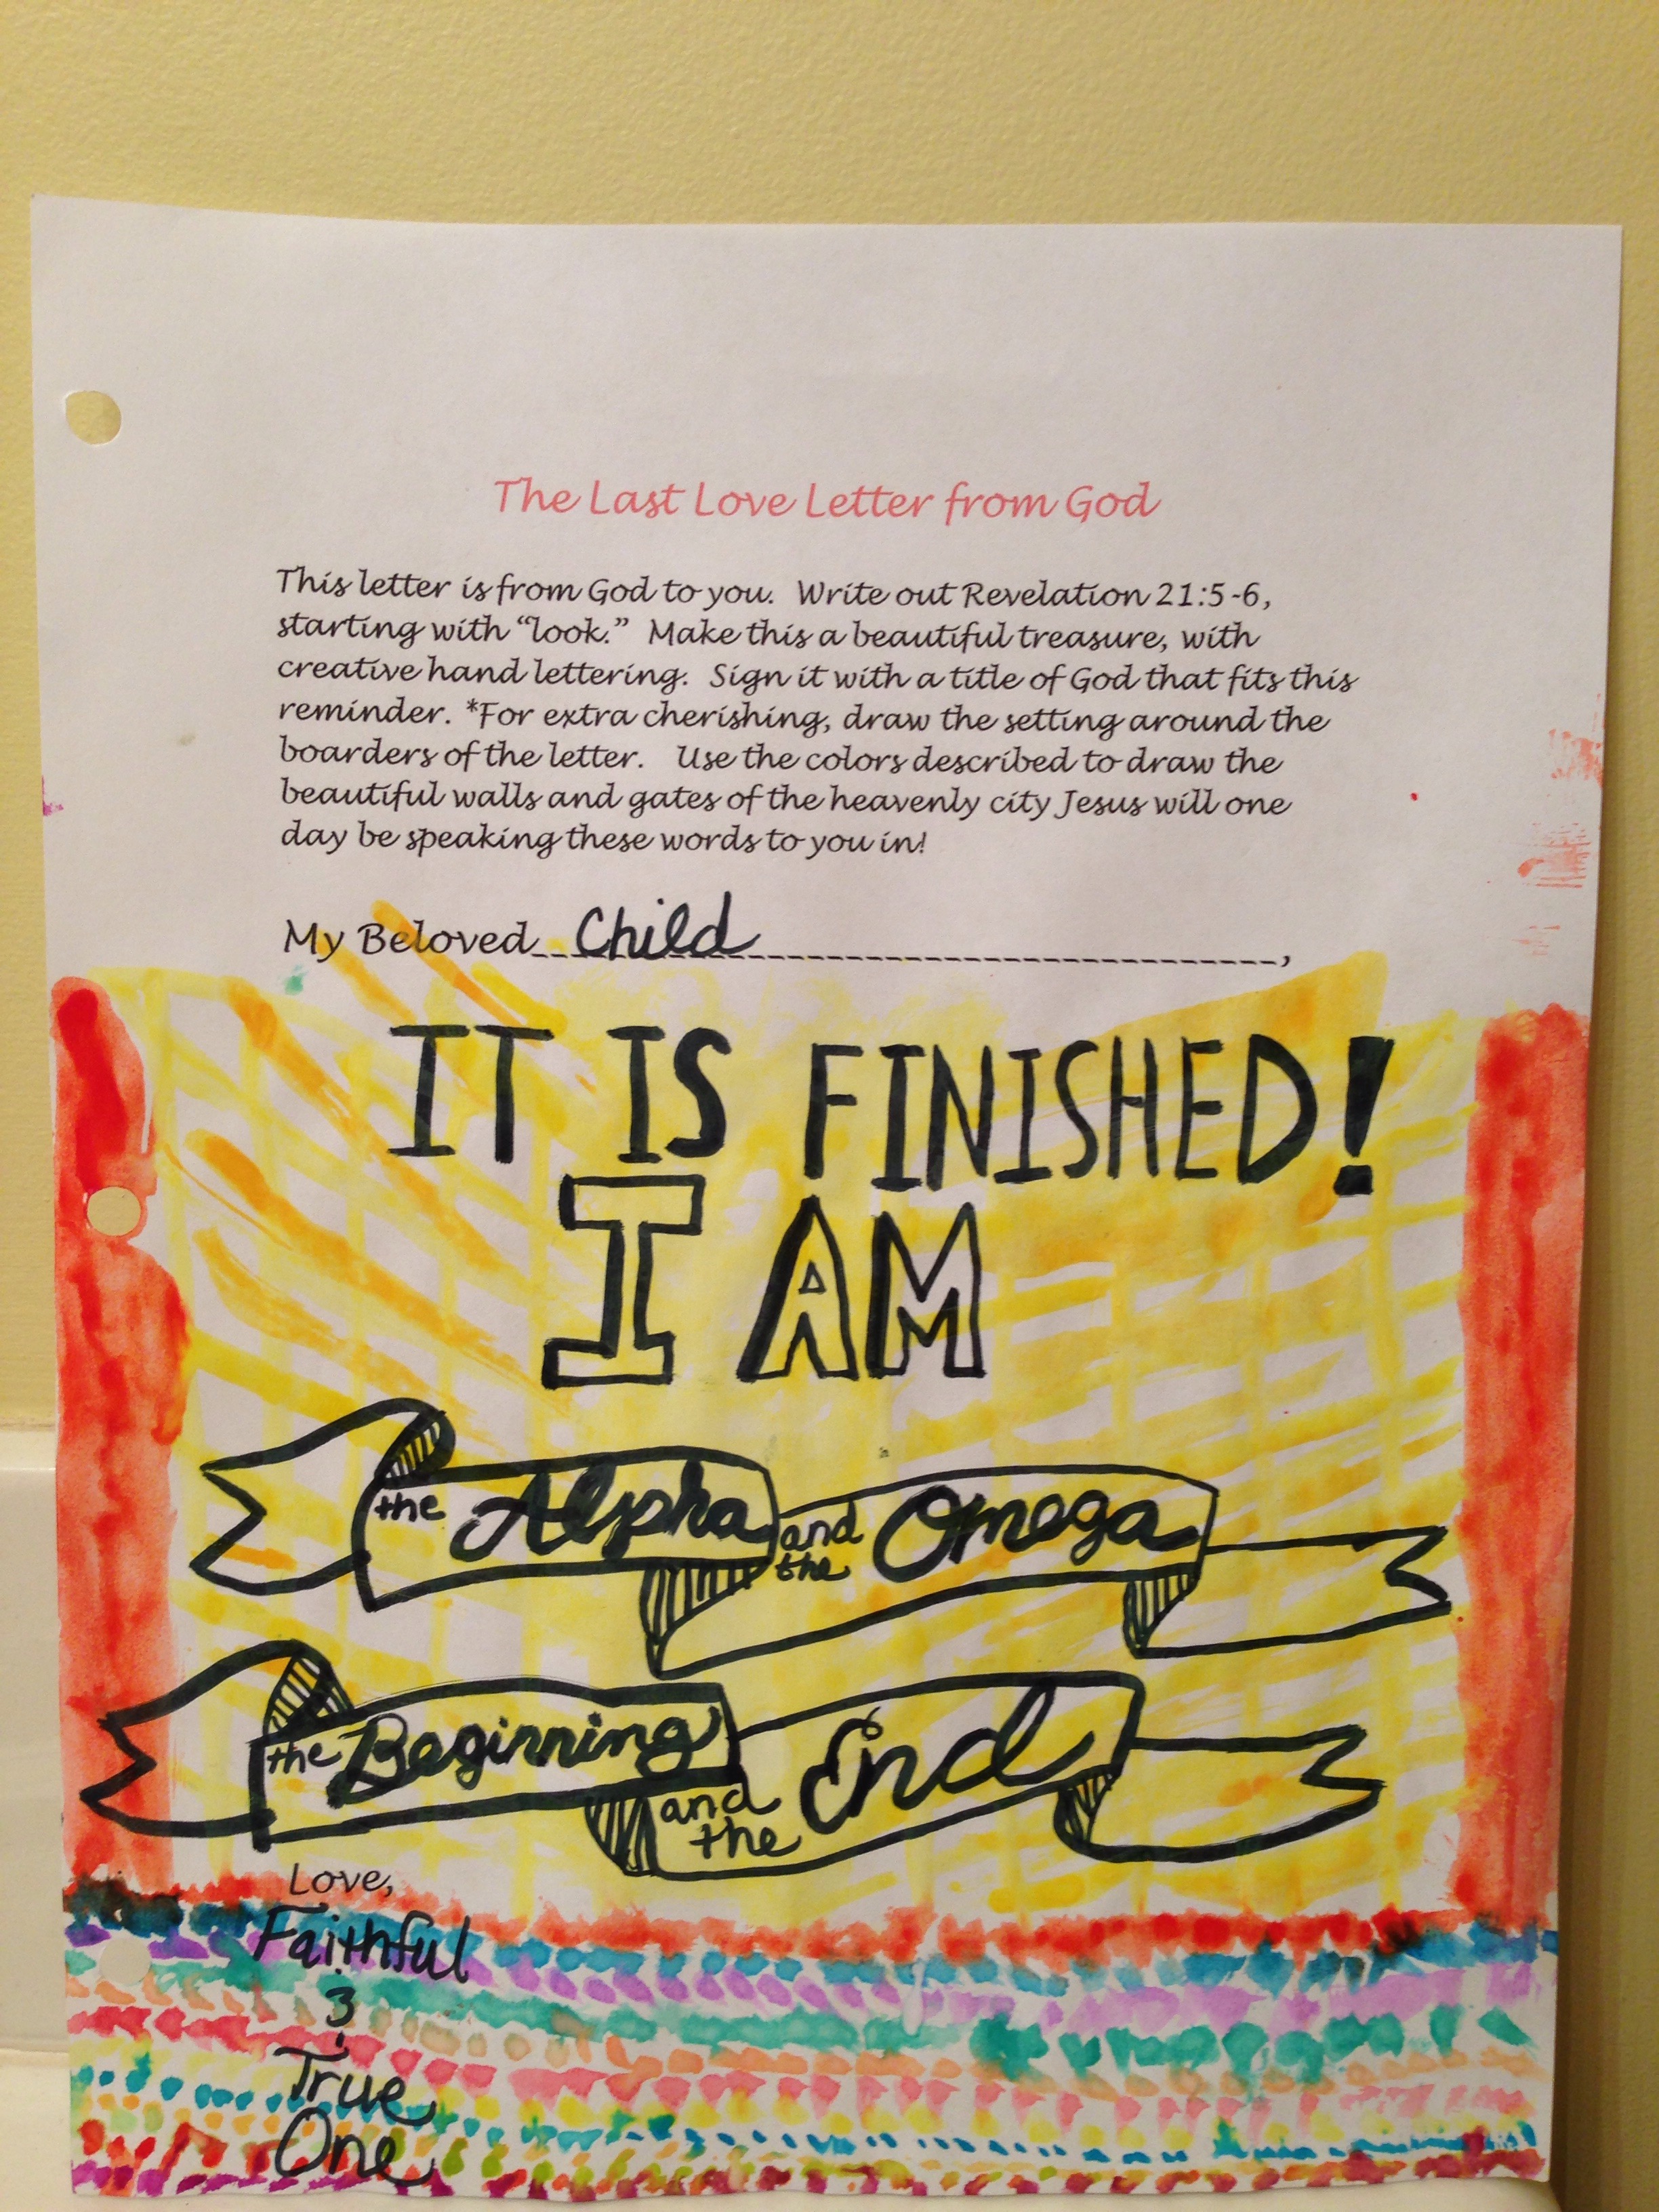 The Last Love Letter from God
This letter is from God to you. Write out Revelation 21:5-6,
starting with "look." Make this a beautiful treasure, with
creative hand lettering. Sign it with a title of God that fits this
reminder. *For extra cherishing, draw the setting around the
boarders of the letter. Use the colors described to draw the
beautiful walls and gates of the heavenly city Jesus will one
day be speaking these words to you in!
My Beloved Child,
IT IS FINISHED!
I AM
the Alpha and the Omega
the Beginning and the End
Love,
Faithful
&
True
One